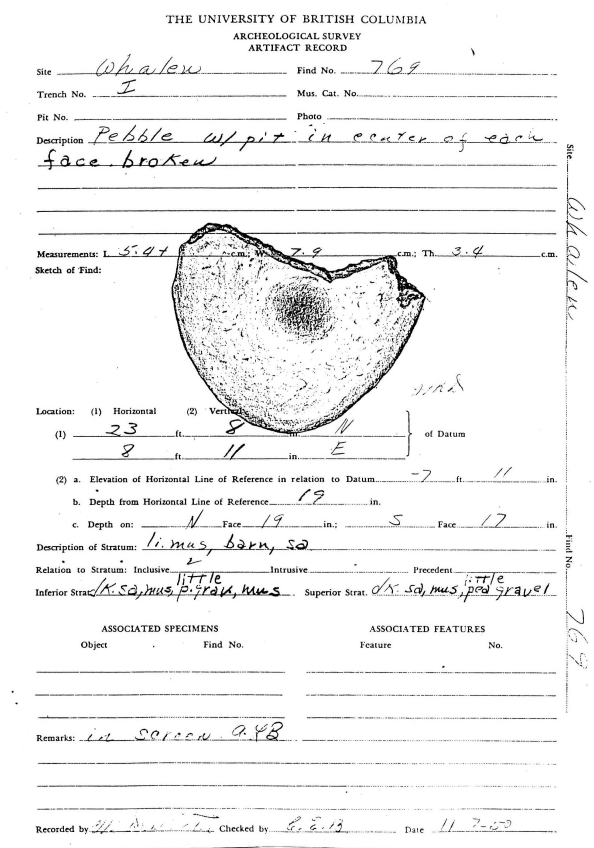 THE UNIVERSITY OF BRITISH COLUMBIA
ARCHEOLOGICAL SURVEY
ARTIFACT RECORD
Site Whalen Find No. 769
Trench No. I Mus. Cat. No.
Pit No. Photo
Description Pebble w/ pit in center of each
face. broken
Measurements: L. 5.4+ c.m.; W. 7.9 c.m.; Th. 3.4 c.m.
Sketch of Find:
Location: (1) Horizontal (2) Vertical
(1) 23 ft. 8 in. N of Datum
8 ft. 11 in. E
(2) a. Elevation of Horizontal Line of Reference in relation to Datum -7 ft. 11 in.
b. Depth from Horizontal Line of Reference 19 in.
c. Depth on: N Face 19 in.; S Face 17 in.
Description of Stratum: li. mus, barn, sa
Relation to Stratum: Inclusive Intrusive Precedent
little little
Inferior Strat. dk. sa, mus, p. grav, mus Superior Strat. dk sa, mus, pea gravel
ASSOCIATED SPECIMENS ASSOCIATED FEATURES
Object Find No. Feature No.
Remarks: in screen
Recorded by Checked by Date 11
Site Whalen
Find No. 769